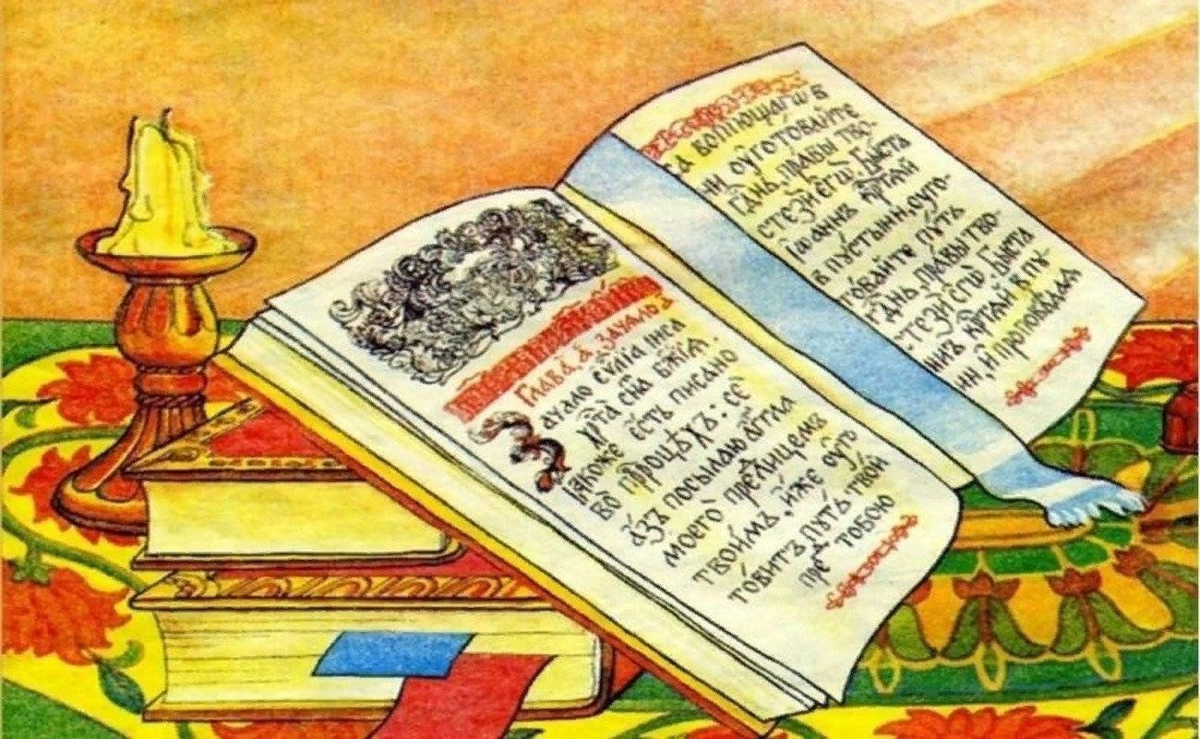 Глава, а҃ зачало, а҃
Зачало еѵⷢ҇лїа їиса
хр҇та сн҃а бж҃їѧ.
Ꙗкоже є́сть писано
во прⷪ҇роцѣхъ: се́
а́зъ посылаю а́г҃гла
моего̀ пред̾ лицемъ
твои́мъ, и́же ᲂу҆го
то́витъ пꙋ́ть тво́й
пред̾ тобою
са вопїющагѡ в
ни ᲂу҆гото́вайте
гд҇нь, правы тво-
стезѝ єгѡ̀. Бы́ста
Їѡаннъ кр҇тѧй
в пꙋстыни, ᲂу҆го-
то́вайте пꙋ́ть
гд҇нь, пра́вы тво-
стезѝ єгѡ̀. Бы́ста
ннъ кр҇тѧй в пꙋ-
ни, и҆ проповѣдаѧ